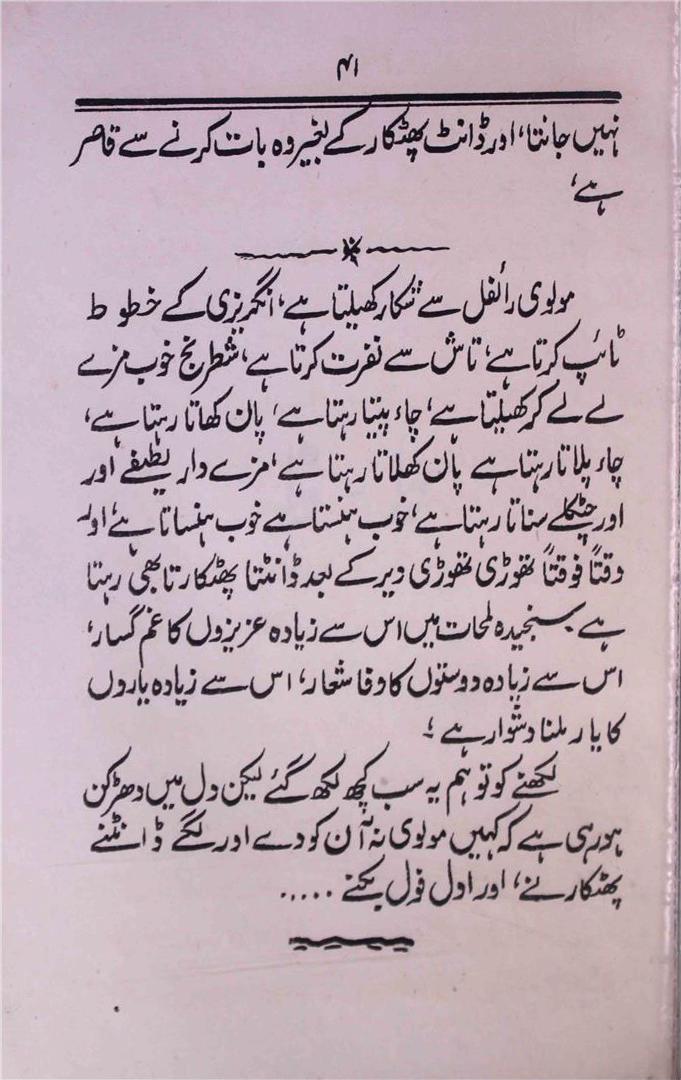 ۴۱
نہیں جانتا، اور ڈانٹ پھٹکار کے بغیر وہ بات کرنے سے قاصر
ہے،
مولوی رائفل سے شکار کھیلتا ہے، انگریزی کے خطوط
ٹائپ کرتا ہے، تاش سے نفرت کرتا ہے، شطرنج خوب مزے
لے لے کر کھیلتا ہے، چاء پیتا رہتا ہے، پان کھاتا رہتا ہے،
چاء پلاتا رہتا ہے پان کھلاتا رہتا ہے، مزے دار لطیفے اور
اور چٹکلے سناتا رہتا ہے، خوب ہنستا ہے خوب ہنساتا ہے، اور
وقتاً فوقتاً تھوڑی تھوڑی دیر کے بعد ڈانٹتا پھٹکارتا بھی رہتا
ہے سنجیدہ لمحات میں اس سے زیادہ عزیزوں کا غم گسار،
اس سے زیادہ دوستوں کا وفا شعار، اس سے زیادہ یاروں
کا یار ملنا دشوار ہے ؛
لکھنے کو تو ہم یہ سب کچھ لکھ گئے لیکن دل میں دھڑکن
ہو رہی ہے کہ کہیں مولوی نہ آن کودے اور لگے ڈانٹنے
پھٹکارنے، اور اول فول بکنے .....